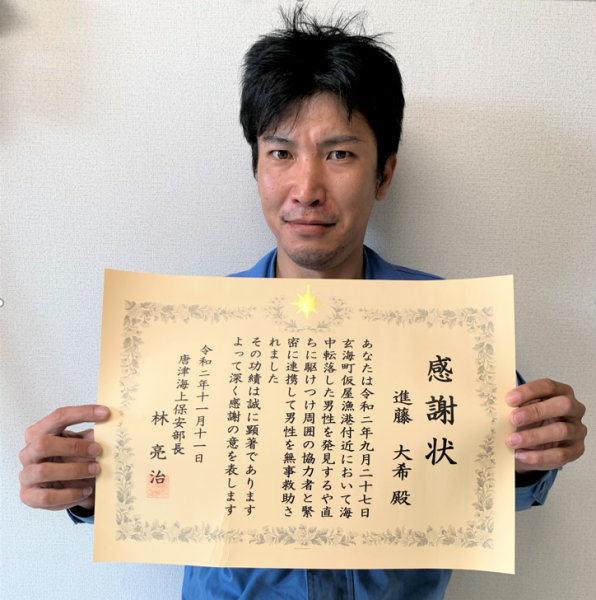 感謝状
進藤 大希 殿
あなたは令和二年九月二十七日
玄海町仮屋漁港付近において海
中転落した男性を発見するや直
ちに駆けつけ周囲の協力者と緊
密に連携して男性を無事救助さ
れました
その功績は誠に顕著であります
よって深く感謝の意を表します
令和二年十一月十一日
唐津海上保安部長
林 亮治